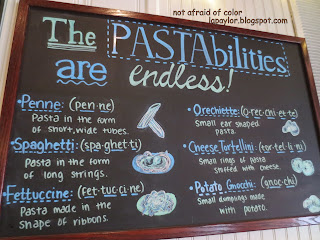 not afraid of color
jopaylor.blogspot.com
The PASTAbilities
are endless!
• Penne: (pen·ne)
Pasta in the form
of short, wide tubes.
• Spaghetti: (spa·ghet·ti)
Pasta in the form
of long strings.
• Fettuccine: (fet·tuc·ci·ne)
Pasta made in the
shape of ribbons.
• Orechiette: (o·rec·chi·et·te)
Small ear shaped
pasta.
• Cheese Tortellini: (tor·tel·li·ni)
Small rings of pasta
stuffed with cheese.
• Potato Gnocchi: (gnoc·chi)
Small dumplings made
with potato.